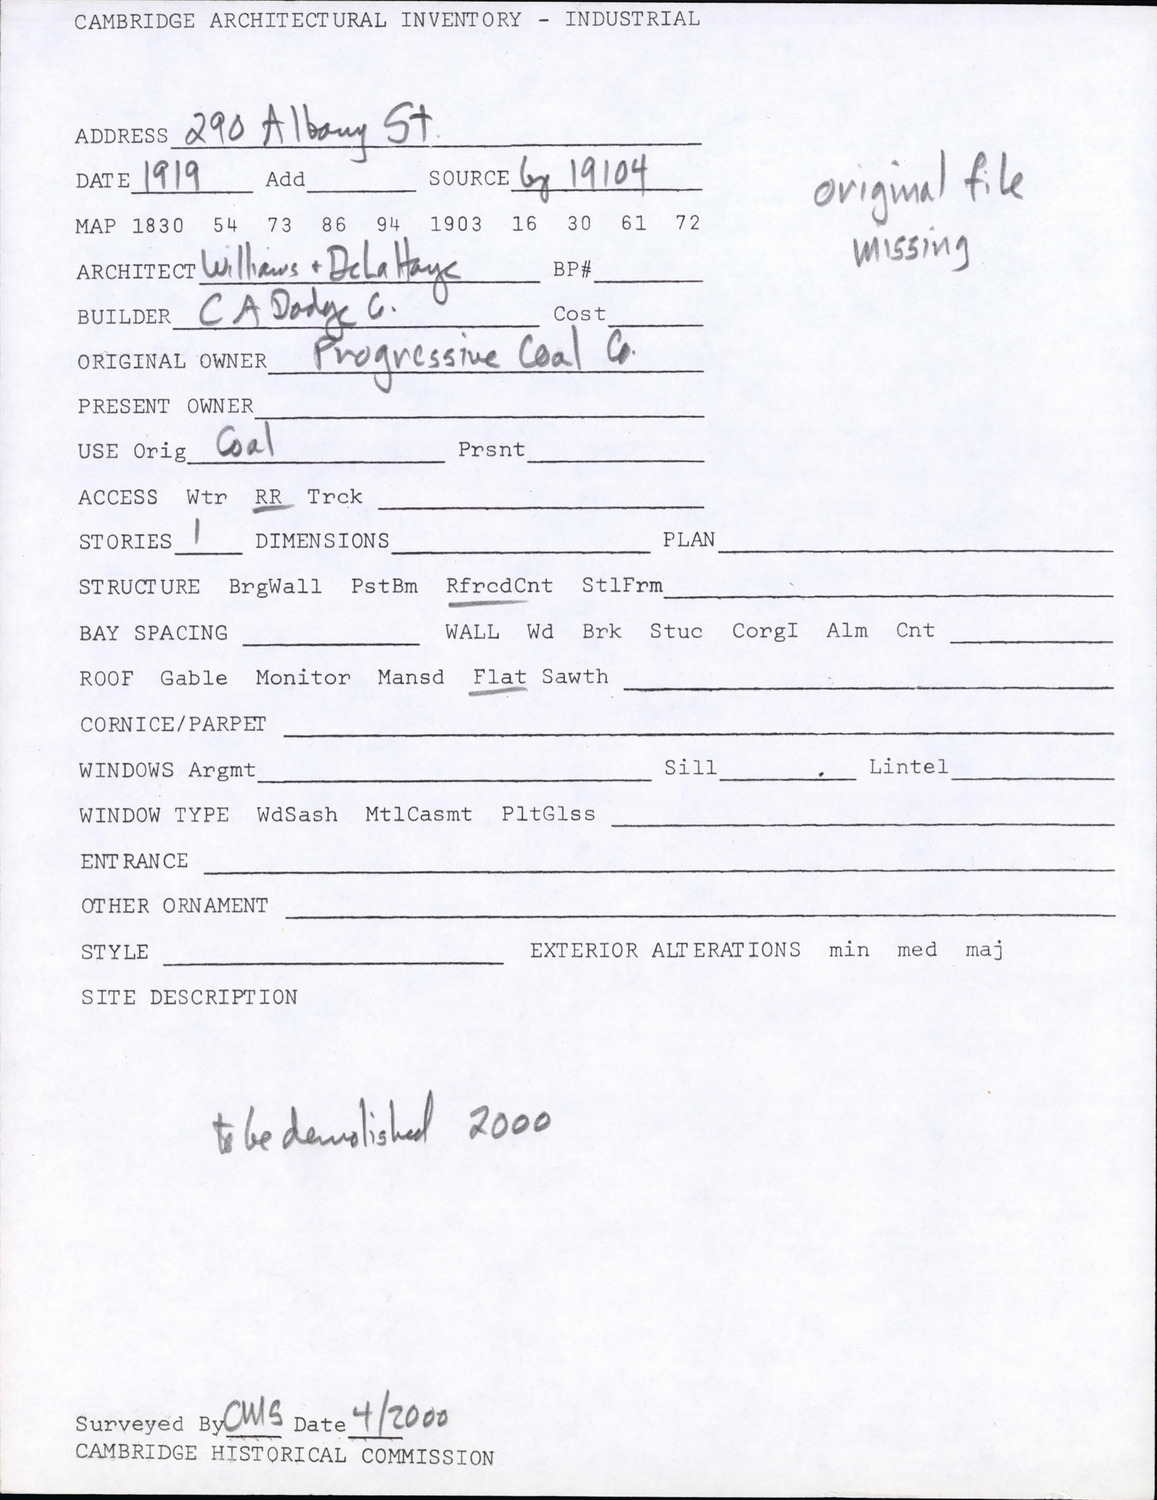 CAMBRIDGE ARCHITECTURAL INVENTORY - INDUSTRIAL
ADDRESS 290 Albany St.
DATE 1919 Add SOURCE 19104
original file
missing
MAP 1830 54 73 86 94 1903 16 30 61 72
ARCHITECT Williams + DeLaHaye BP#
BUILDER C A Dodge Co. Cost
ORIGINAL OWNER Progressive Coal Co.
PRESENT OWNER
USE Orig Coal Prsnt
ACCESS Wtr RR Trck
STORIES 1 DIMENSIONS PLAN
STRUCTURE BrgWall PstBm RfrcdCnt StlFrm
BAY SPACING WALL Wd Brk Stuc CorgI Alm Cnt
ROOF Gable Monitor Mansd Flat Sawth
CORNICE/PARPET
WINDOWS Argmt Sill Lintel
WINDOW TYPE WdSash MtlCasmt PltGlss
ENTRANCE
OTHER ORNAMENT
STYLE EXTERIOR ALTERATIONS min med maj
SITE DESCRIPTION
to be demolished 2000
Surveyed By CMS Date 4/2000
CAMBRIDGE HISTORICAL COMMISSION